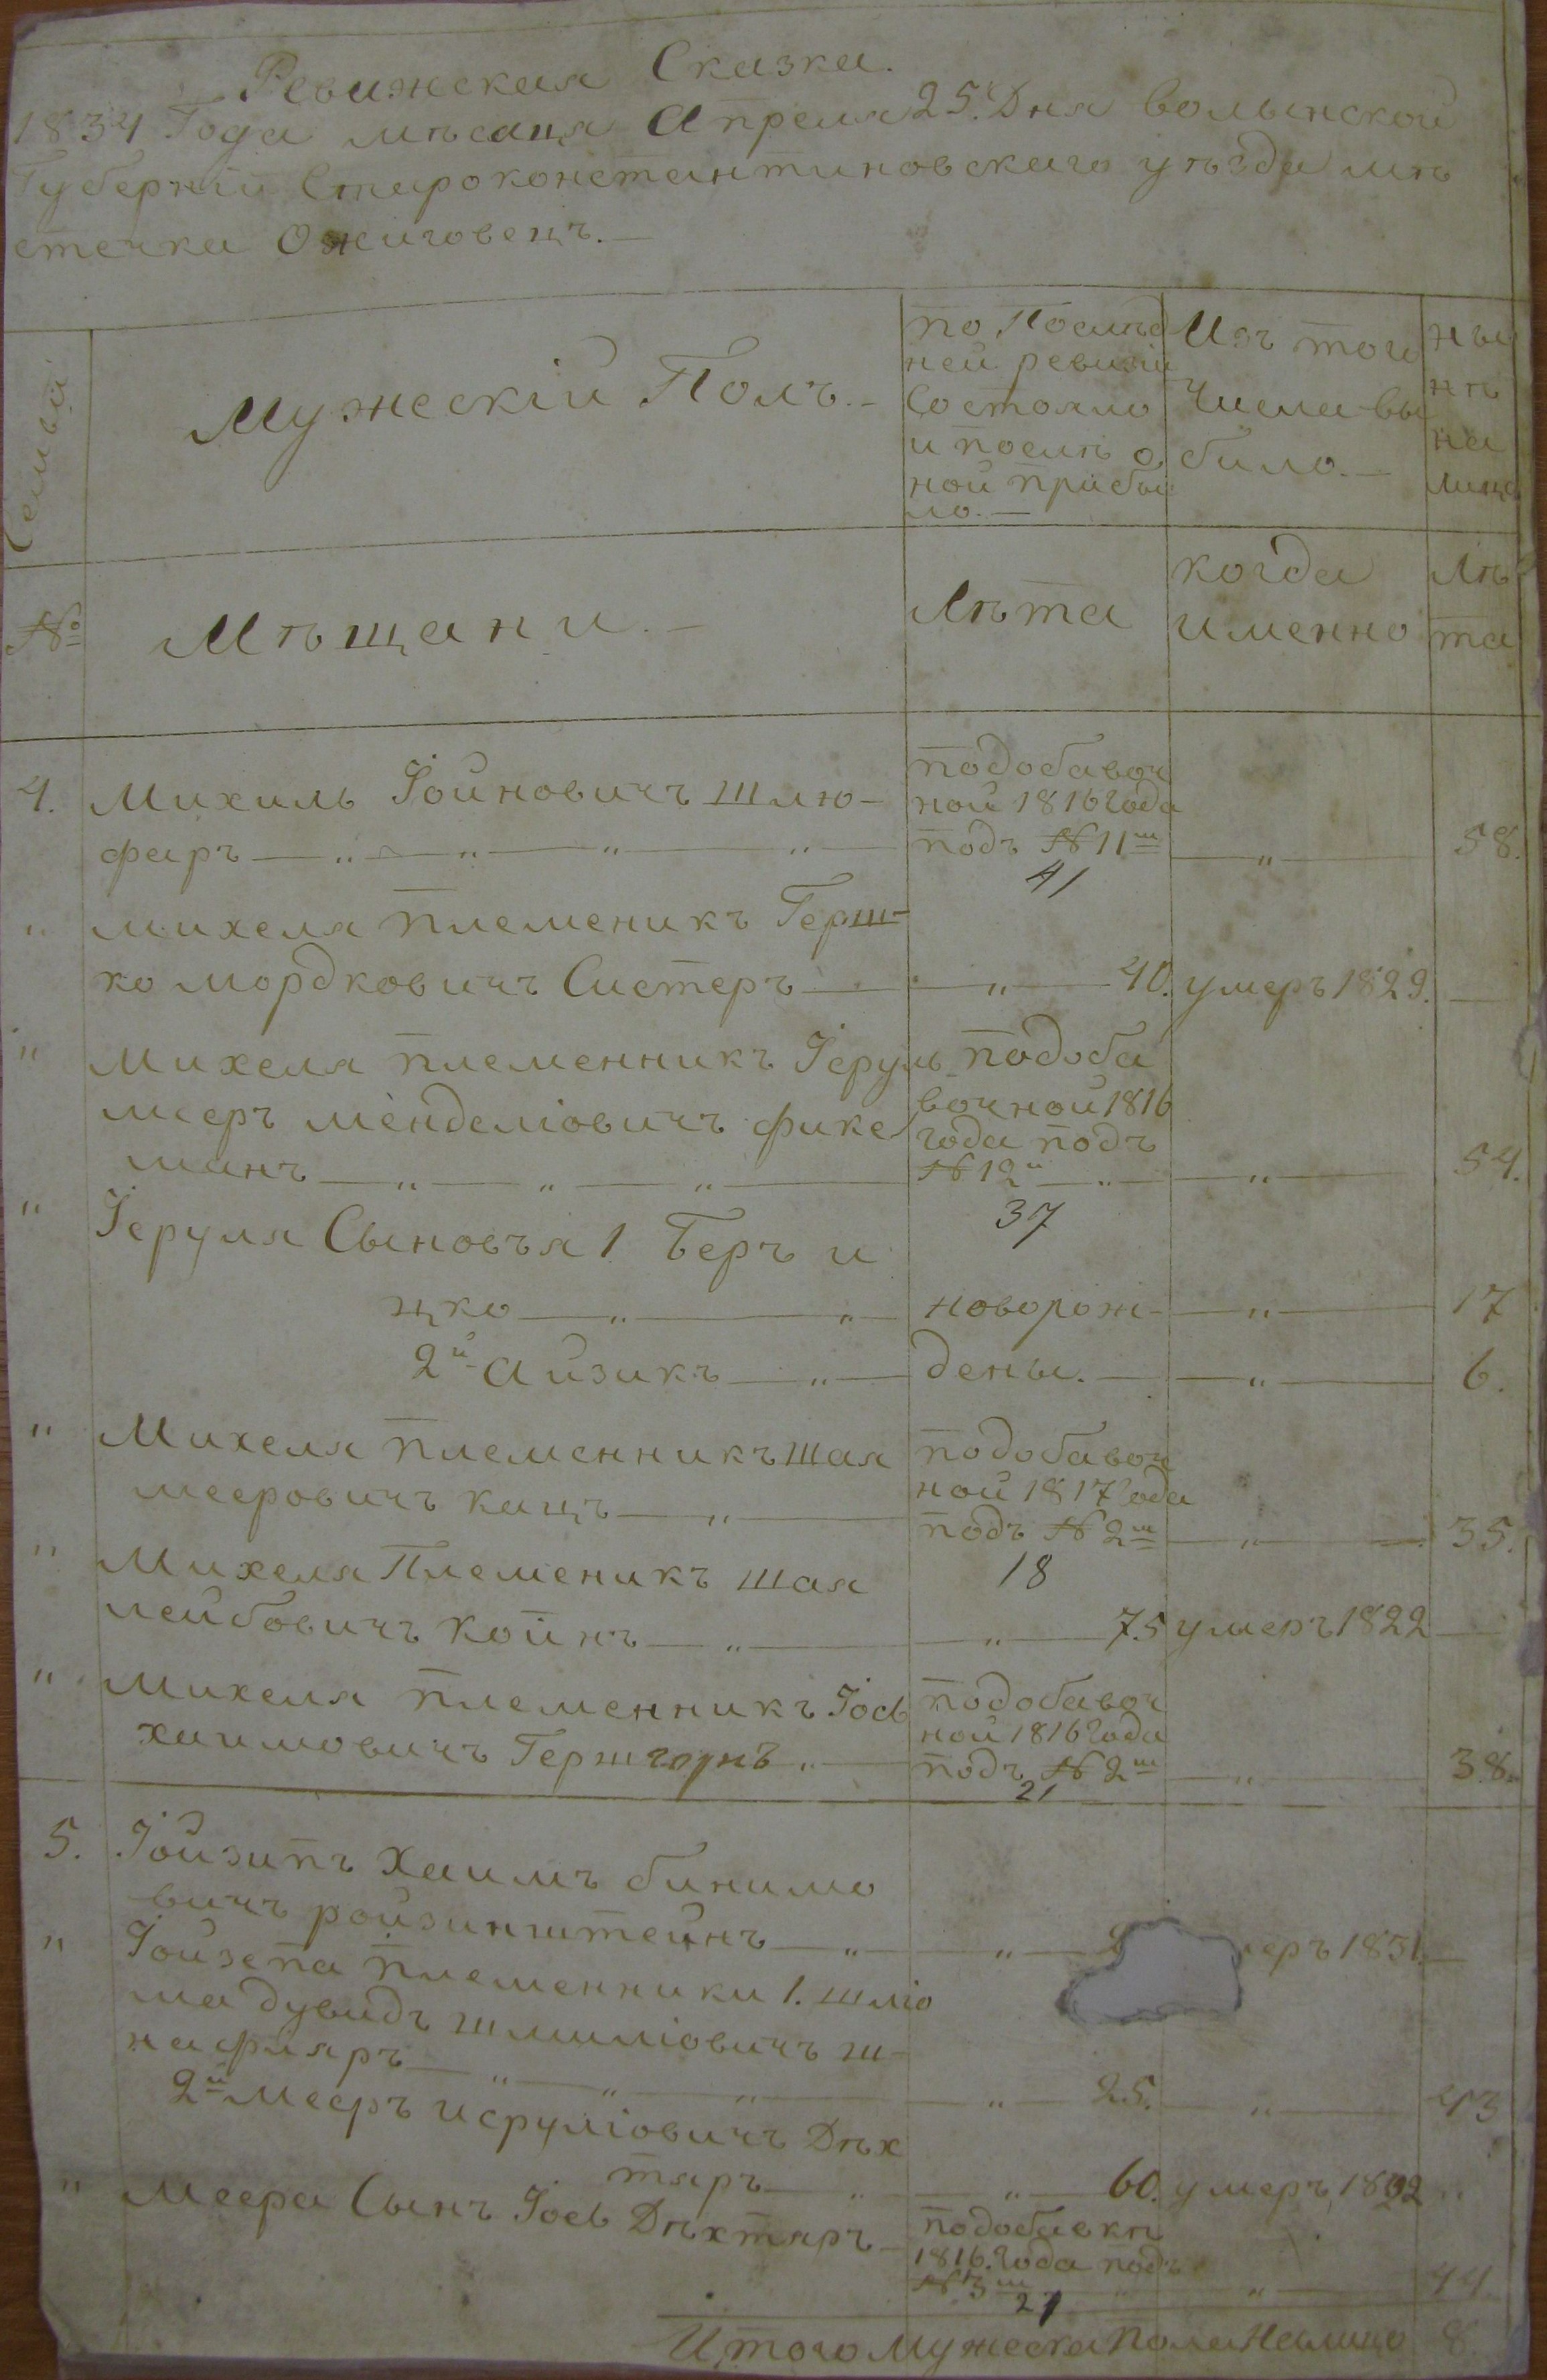 Ревижская Сказка.
1834 Года мѣсаца Апреля 25. Дня волынской
Губерніи Староконстантиновскаго уѣзда мѣ
стечка Ожиговецъ.—
Семьи
Мужескій Полъ.—
по Послѣд
ней ревизіи
Состояло
и послѣ о
ной прибы
ло.—
Изъ того
Числа вы
било.—
ны
нѣ
на
лицо
№
Мѣщани.—
Лѣта
когда
именно
Лѣ
та
4. Михиль Іойновичъ Шлю-
фаръ — „ — „ — „ — „ —
подобавоч
ной 1816 Года
подъ №11м — „ — 58.
41
„ михеля племеникъ Герш-
ко мордковичъ Систеръ — „ — 40. умеръ 1829. —
„ Михеля племенникъ Іеруль
меръ менделіовичъ фике
манъ — „ — „ — „ —
подоба
вочной 1816
года подъ
№12й — „ — „ — 54.
37
„ Іеруля Сыновъя 1 Беръ и
цко — „ — „ новорож- — „ — 17
2й Айзикъ — „ — дены. — „ — 6.
„ Михеля племенникъ Шая
мееровичъ кацъ — „ —
подобавоч
ной 1817 Года
подъ №2м — „ — 35.
18
„ Михеля Племеникъ шая
лейбовичъ койнъ — „ — „ — 75 умеръ 1822 —
„ Михеля племенникъ Іось
хаимовичъ Гершгорнъ „ —
подобавоч
ной 1816 Года
подъ №2м — „ — 38.
21
5. Іойзипъ Хаимъ бинимо
вичъ ройзинштейнъ — „ — „ — меръ 1831. —
„ Іойзепа племенники 1. шліо
ма дувидъ шлиміовичъ ш-
нафляръ — „ — „ — „ — „ — 25. — „ — 43
2й Мееръ исруліовичъ Дѣх
тяръ — „ — „ — 60. умеръ 1832 „
„ Меера Сынъ Іось Дѣхтяръ —
подобавкѣ
1816. Года подъ
№3м „ — „ — 44
27
Итого Мужеска Пола Налицо 8.